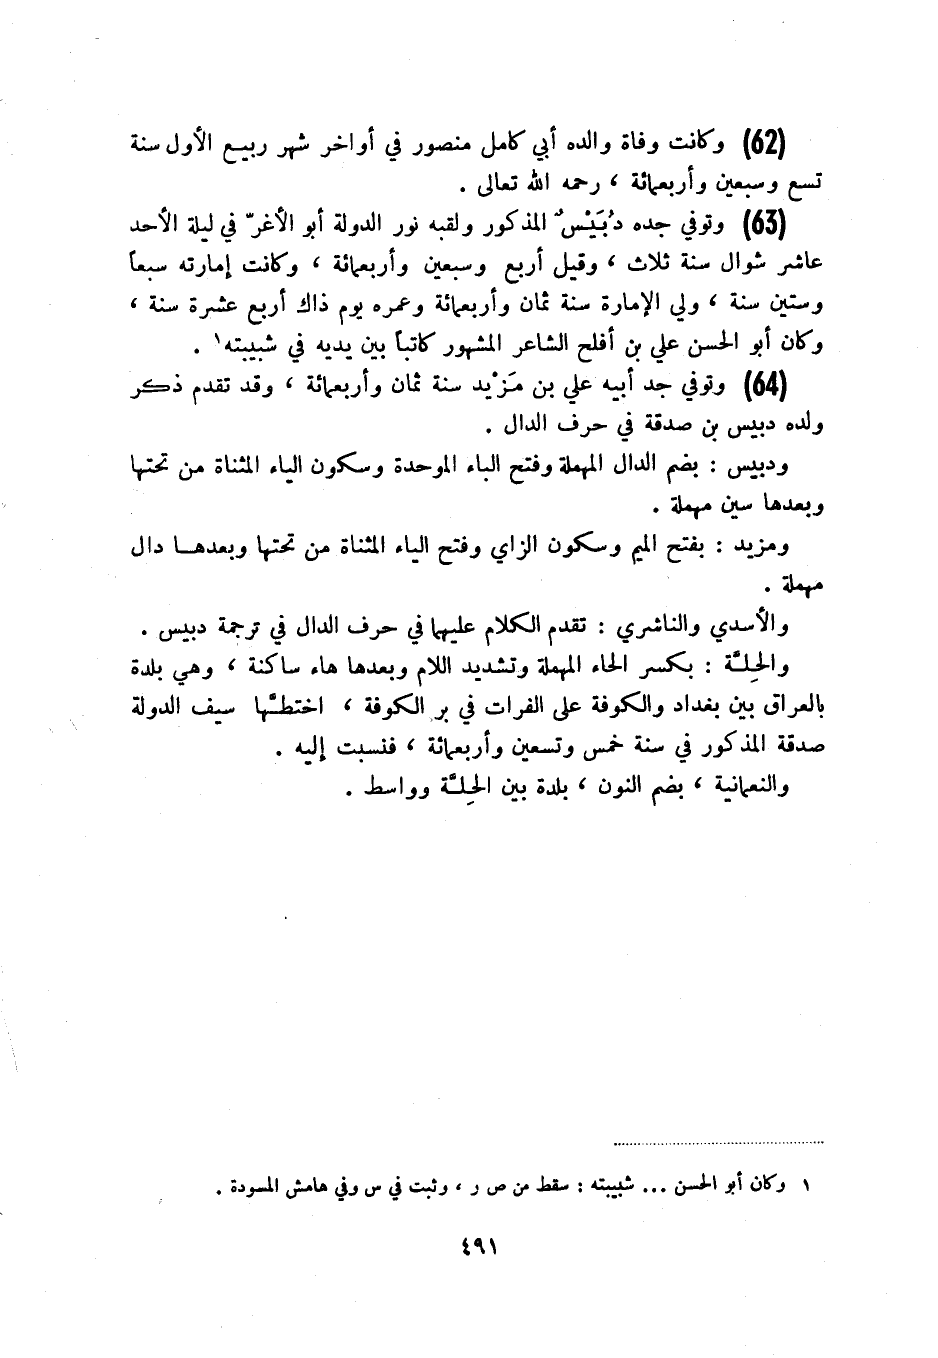 (62) وكانت وفاة والده أبي كامل منصور في أواخر شهر ربيع الأول سنة
تسع وسبعين وأربعمائة ، رحمه الله تعالى .
(63) وتوفي جده دُبَيْسٌ المذكور ولقبه نور الدولة أبو الأغرّ في ليلة الأحد
عاشر شوال سنة ثلاث ، وقيل أربع وسبعين وأربعمائة ، وكانت إمارته سبعاً
وستين سنة ، ولي الإمارة سنة ثمان وأربعمائة وعمره يوم ذاك أربع عشرة سنة ،
وكان أبو الحسن علي بن أفلح الشاعر المشهور كاتباً بين يديه في شبيبته١ .
(64) وتوفي جد أبيه علي بن مَزْيد سنة ثمان وأربعمائة ، وقد تقدم ذكر
ولده دبيس بن صدقة في حرف الدال .
ودبيس : بضم الدال المهملة وفتح الباء الموحدة وسكون الياء المثناة من تحتها
وبعدها سين مهملة .
ومزيد : بفتح الميم وسكون الزاي وفتح الياء المثناة من تحتها وبعدهـا دال
مهملة .
والأسدي والناشري : تقدم الكلام عليها في حرف الدال في ترجمة دبيس .
والحِلَّة : بكسر الحاء المهملة وتشديد اللام وبعدها هاء ساكنة ، وهي بلدة
بالعراق بين بغداد والكوفة على الفرات في بر الكوفة ، اختطَّها سيف الدولة
صدقة المذكور في سنة خمس وتسعين وأربعمائة ، فنسبت إليه .
والنعمانية ، بضم النون ، بلدة بين الحِلَّة وواسط .
١ وكان أبو الحسن ... شبيبته : سقط من ص ر ، وثبت في س وفي هامش المسودة .
٤٩١